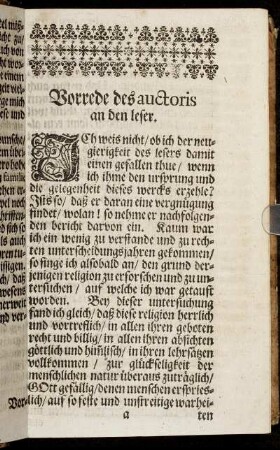 Vorrede des auctoris
an den leser.
ICh weis nicht/ ob ich der neu-
gierigkeit des lesers damit
einen gefallen thue/ wenn
ich ihme den ursprung und
die gelegenheit dieses wercks erzehle?
Ists so/ daß er daran eine vergnügung
findet/ wolan! so nehme er nachfolgen-
den bericht darvon ein. Kaum war
ich ein wenig zu verstande und zu rech-
ten unterscheidungsjahren gekommen/
so finge ich alsobald an/ den grund der-
jenigen religion zu erforschen und zu un-
tersuchen/ auf welche ich war getaufft
worden. Bey dieser untersuchung
fand ich gleich/ daß diese religion herrlich
und vortreflich/ in allen ihren geboten
recht und billig/ in allen ihren absichten
göttlich und himlisch/ in ihren lehrsätzen
vollkommen/ zur glückseligkeit der
menschlichen natur überaus zuträglich/
GOtt gefällig/ denen menschen erspries-
lich/ auf so feste und unstreitige warhei-
a
ten
Vor-